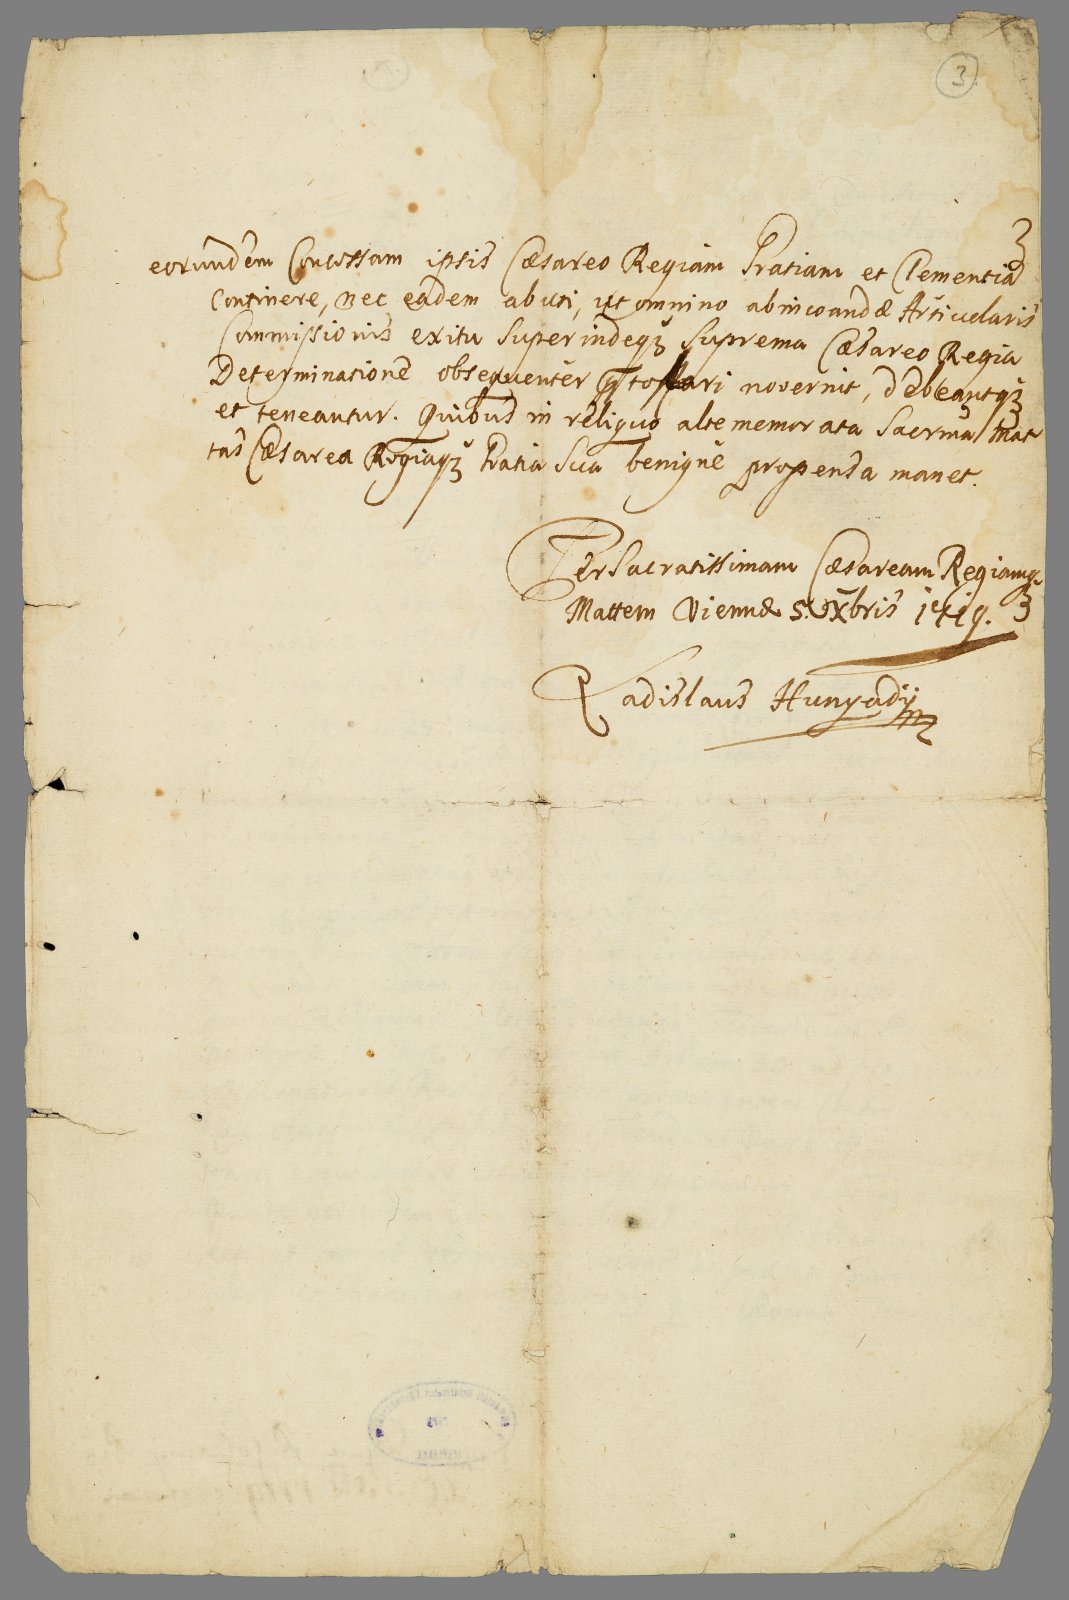 3
eorundem Concessam ipsis Cæsareo Regiam Gratiam et Clementiã
continere, nec eadem abuti, ut omnino ab incoandæ Articularis
Commissionis exitu superindeqꝫ Suprema Cæsareo Regia
Determinatione obsequentèr noverint, debeantqꝫ
et teneantur. Quibus in reliquo alte memorata Sacrma Mat
tas Cæsarea Regiaqꝫ Gratia Sua benignè propensa manet.
Per Sacratissimam Cæsaream Regiamqꝫ
Mattem Viennæ 5. Xbris 1719.
Ladislaus Hunyady